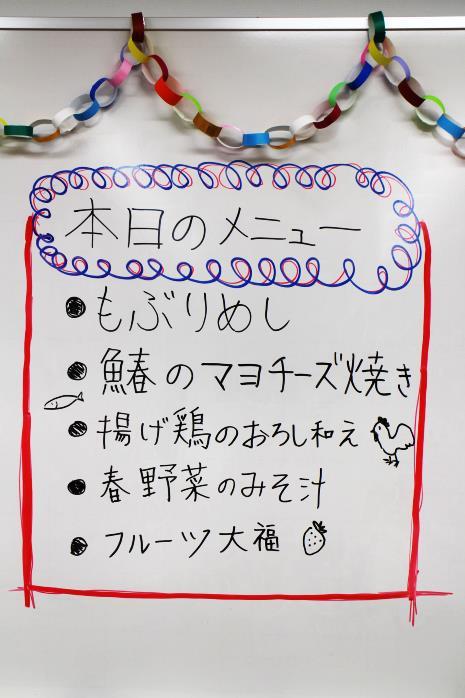 本日のメニュー
● もぶりめし
● 鰆のマヨチーズ焼き
● 揚げ鶏のおろし和え
● 春野菜のみそ汁
● フルーツ大福